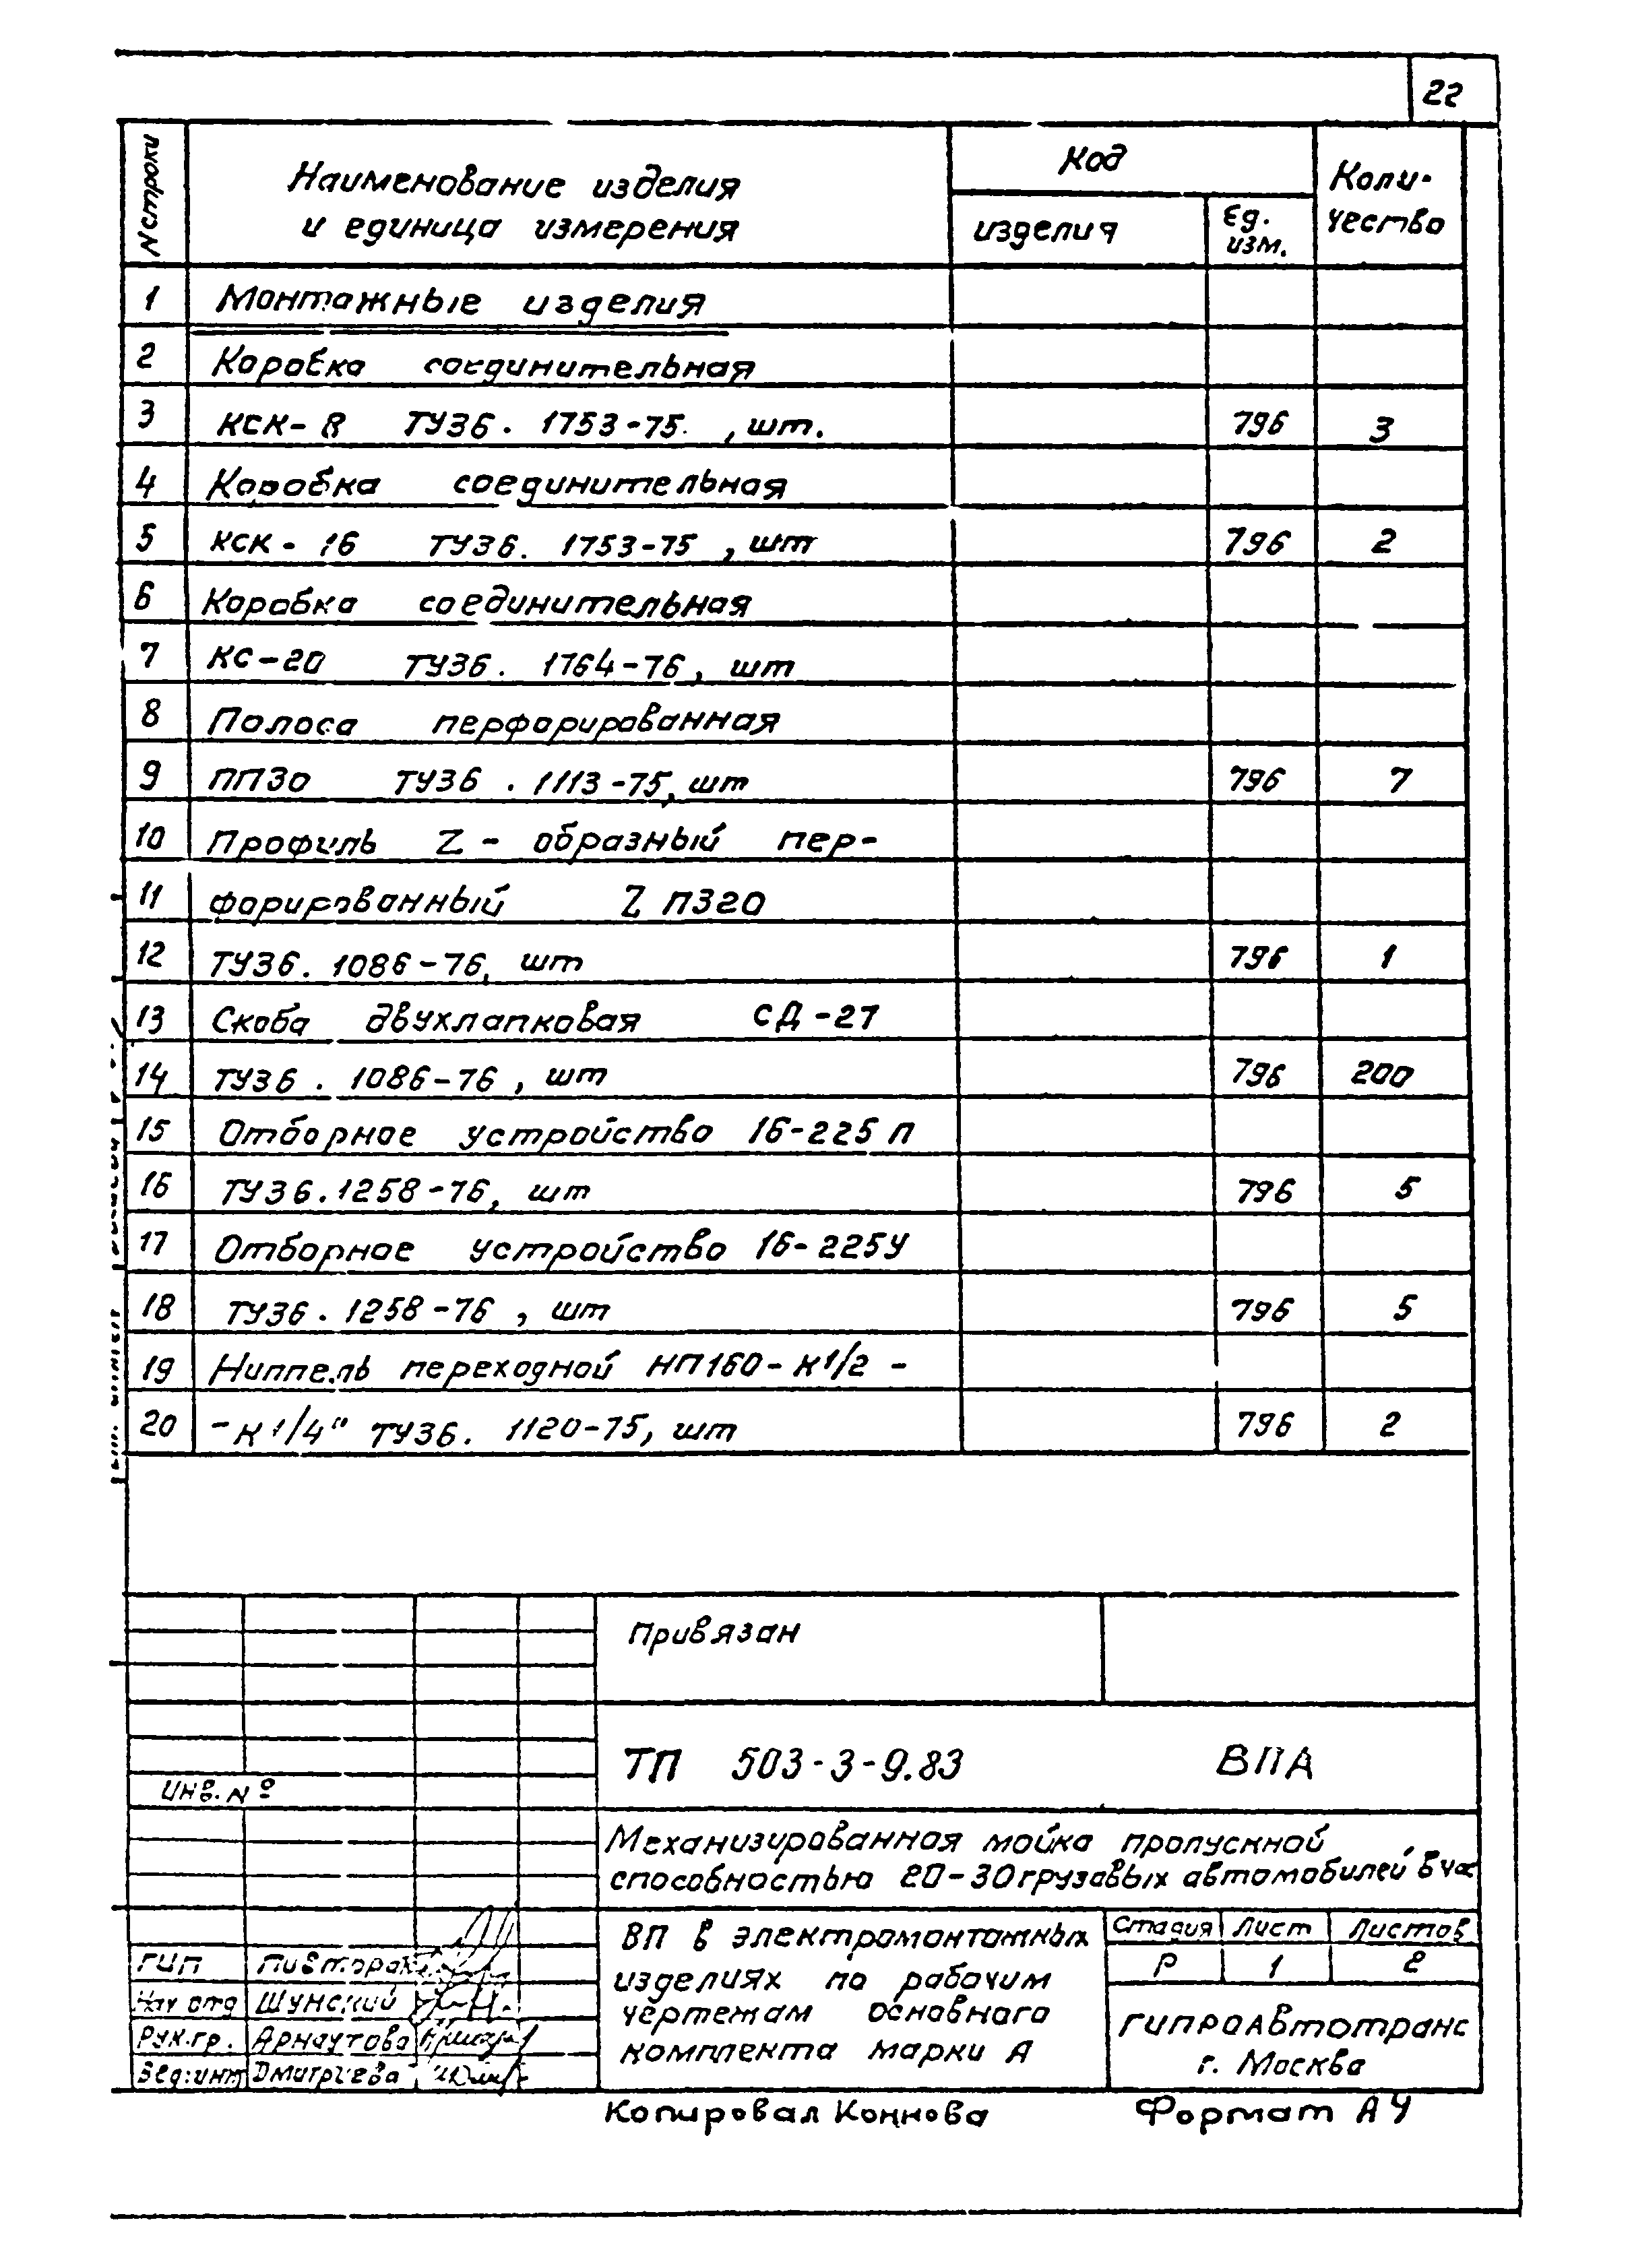 22
N строки
Наименование изделия
и единица измерения
Код
изделия
Ед.
изм.
Коли-
чество
1 Монтажные изделия
2 Коробка соединительная
3 КСК-8 ТУ36. 1753-75. , шт. 796 3
4 Коробка соединительная
5 КСК-16 ТУ36. 1753-75 , шт 796 2
6 Коробка соединительная
7 КС-20 ТУ36. 1764-76, шт
8 Полоса перфорированная
9 ПП30 ТУ36 . 1113-75, шт 796 7
10 Профиль Z - образный пер-
11 форированный Z П320
12 ТУ36. 1086-76, шт 796 1
13 Скоба двухлапковая СД-27
14 ТУ36 . 1086-76 , шт 796 200
15 Отборное устройство 16-225 П
16 ТУ36.1258-76, шт 796 5
17 Отборное устройство 16-225У
18 ТУ36. 1258-76 , шт 796 5
19 Ниппель переходной НП160-К1/2 -
20 -К 1/4" ТУ36. 1120-75, шт 796 2
Привязан
ТП 503-3-9.83 ВПА
Инв. №
Механизированная мойка пропускной
способностью 20-30 грузовых автомобилей в час
ВП в электромонтажных
изделиях по рабочим
чертежам основного
комплекта марки А
Стадия Лист Листов
Р 1 2
ГИПРОАвтотранс
г. Москва
ГИП Пивторак
Нач отд Шунский
Рук.гр. Арнаутова
Вед.инж Дмитриева
Копировал Коннова Формат А4